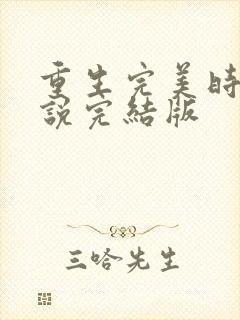 重生完美時
說完結版
三哈先生